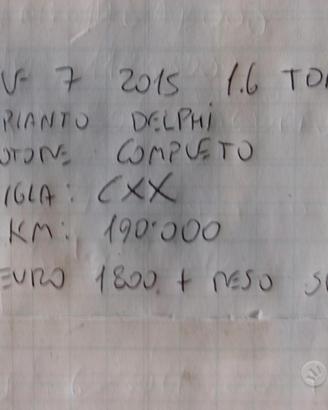 V- 7 2015 1.6 TD
PIANTO DELPHI
OTORE COMPLETO
IGLA: CXX
KM: 190.000
EURO 1800 + RESO S